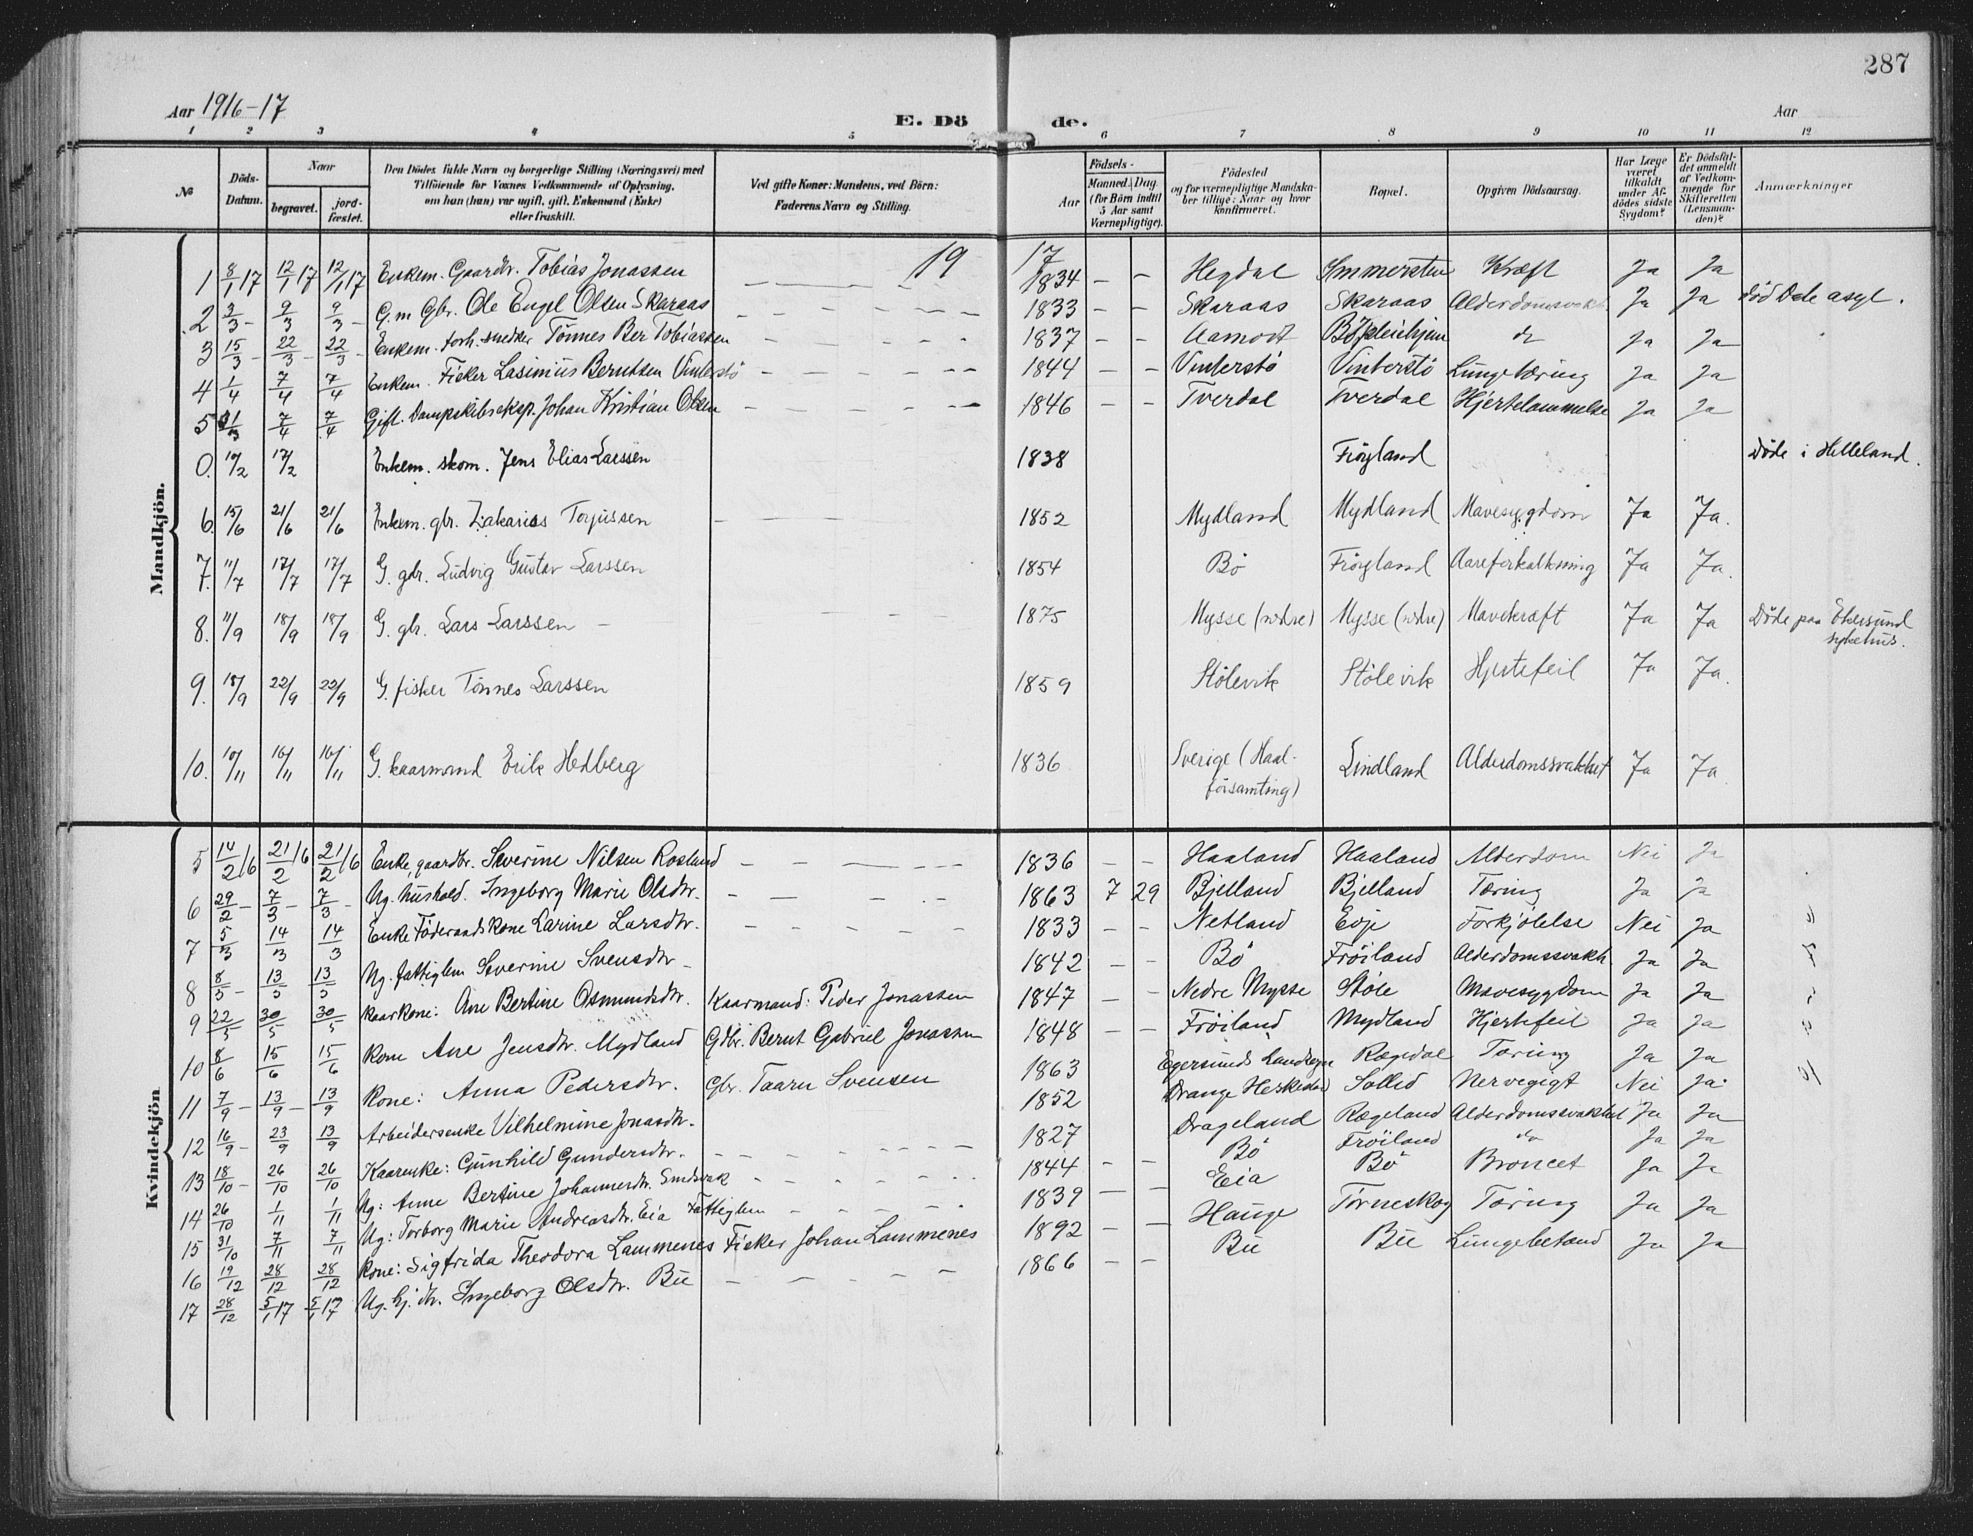 287
Aar 1916-17 E. Dö de. Aar
1 2 3 4 5 6 7 8 9 10 11 12
No Döds-Datum. Naar begravet. jord-fæstet. Den Dödes fulde Navn og borgerlige Stilling (Næringsvei) med Tilföiende for Voxnes Vedkommende af Oplysning, om han (hun) var ugift, gift, Enkemand (Enke) eller fraskilt. Ved gifte Koner: Mandens, ved Börn: Faderens Navn og Stilling. Födsels- Aar Maaned. Dag. (for Börn indtil 5 Aar samt Værnepligtige). Födested og for værnepligtige Mandskaber tillige: Naar og hvor konfirmeret. Bopæl. Opgiven Dödsaarsag. Har Læge været tilkaldt under Afdödes sidste Sygdom? Er Dödsfaldet anmeldt af Vedkommende for Skifteretten (Lensmanden)? Anmærkninger
Mandkjön.
19 17
1 8/1 17 12/1 17 12/1 17 Enkem. Gaardbr. Tobias Jonassen – – – 1834 – – Hegdal Ja Ja Kræft
2 3/3 – 9/3 9/3 – G.m Gbr. Ole Engel Olsen Skaraas – – – 1833 – – Skaraas Skaraas Alderdomsvakh Ja Ja död Dale asyl.
3 15/3 – 22/3 – 22/3 – Enkem. forh. snedker Tönnes Ber Tobiassen – – – 1837 – – Aamodt do Ja Ja
4 1/4 7/4 7/4 Enkem. Fisker Lasimius Berntsen Vinterstö – – – 1844 – – Vinterstö Vinterstö Lungetæring Ja Ja
5 31/3 7/4 7/4 Gift. Dampskibseksp. Johan Kristian Olsen – – – 1846 – – Tverdal Tverdal Hjertelammelse Ja Ja
0. 10/2 17/2 Enkem. skom. Jens Elias Larssen 1838 Fröyland Döde i Helleland.
6. 15/6 21/6 21/6 Enkem. gbr. Zakarias Torjussen – – – 1852 Mydland Mydland Mavesygdom Ja Ja.
7. 11/7 17/7 17/7 G. gbr. Ludvig Gustav Larssen 1854 Bö Fröyland Aareforkalkning Ja Ja.
8. 11/9 18/9 18/9 G. gbr. Lars Larssen – 1875 Mysse (nedre) Mysse (nedre) Mavekræft Ja Ja Döde paa Ekersund sykehus.
9. 18/9 22/9 22/9 G. fisker Tönnes Larssen 1859 Stölevik Stölevik Hjertefeil Ja Ja.
10. 10/11 16/11 16/11 G. kaarmand Erik Hedberg 1836 Sverige (Haal-församling) Lindland Alderdomssvakhet Ja Ja.
Kvindekjön
5 14/2 16 21/2 16 21/2 16 Enke, gaardbr. Severine Nilsen Rosland – – – 1836 – – Haaland Haaland Alderdom Nei Ja
6 29/2 – 7/3 – 7/3 – Ug. hushold. Ingeborg Marie Olsdtr. – – – 1863 7 29 Bjelland Bjelland Tæring Ja Ja
7 5/3 14/3 14/3 Enke Föderaadskone Larine Larsdtr. – – – 1833 – – Netland Eoje Forkjölelse Nei Ja
8 8/5 – 13/5 13/5 Ug. fattiglem Severine Svensdtr – 1842 – – Bö Fröiland Alderdomssvakh Ja Ja
9 22/5 30/5 30/5 Kaarkone: Ane Bertine Osmundsdtr. Kaarmand: Peder Jonassen 1847 – – Nedre Mysse Stöle Mavesygdom Ja Ja
10 8/6 15/6 15/6 Kone Ane Jensdtr. Mydland Gdbr. Bernt Gabriel Jonassen 1848 – – Fröiland Mydland Hjertefeil Ja Ja
11 7/9 – 13/9 – 13/9 Kone: Anna Pedersdtr. Gbr. Taaru Svensen 1863 Egersunds Landsogn Rægedal Tæring Ja Ja
12 16/9 – 23/9 13/9 Arbeidersenke Vilhelmine Jonasdtr. 1852 Drange Heskestad Sollid Nervegigt Nei Ja
13 18/10 – 26/10 26/10 Kaarenke: Gunhild Gundersdtr. – – – 1827 Drageland Rægeland Alderdomssvakhet Ja Ja
14 26/10 1/11 1/11 Ug: Anne Bertine Johannesdtr. – – – 1844 – – Bö Fröiland do Ja Ja
15 31/10 7/11 7/11 Ug: Torborg Marie Andreasdtr. Eia Fattiglem – – – 1839 – – Eia Bö Broncet Ja Ja
16 19/12 28/12 28/12 Kone: Sigfrida Theodora Lammenes Fisker Johan Lammenes 1892 – – Hauge Törneskog Tæring Ja Ja
17 28/12 5/1 17 5/1 17 Ug. hj. dtr. Ingeborg Olsdtr. Bu – – – 1866 – – Bu Bu Lungebetænd Ja Ja